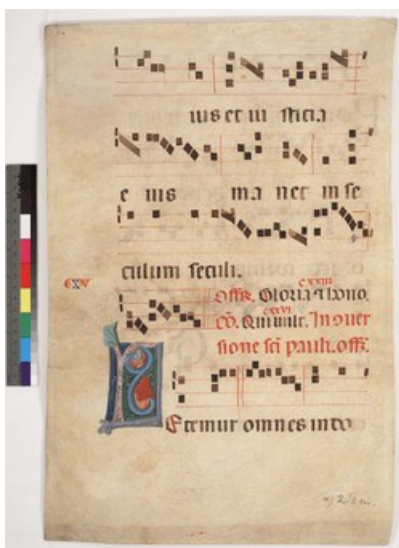 ius et iu sticia
e ius ma net in se
culum seculi.
cxv
Offm. Gloria et hono. cxxiii
cō. Qui mult. In quer cxvi
sione sci pauli. offm.
L Etemur omnes in do